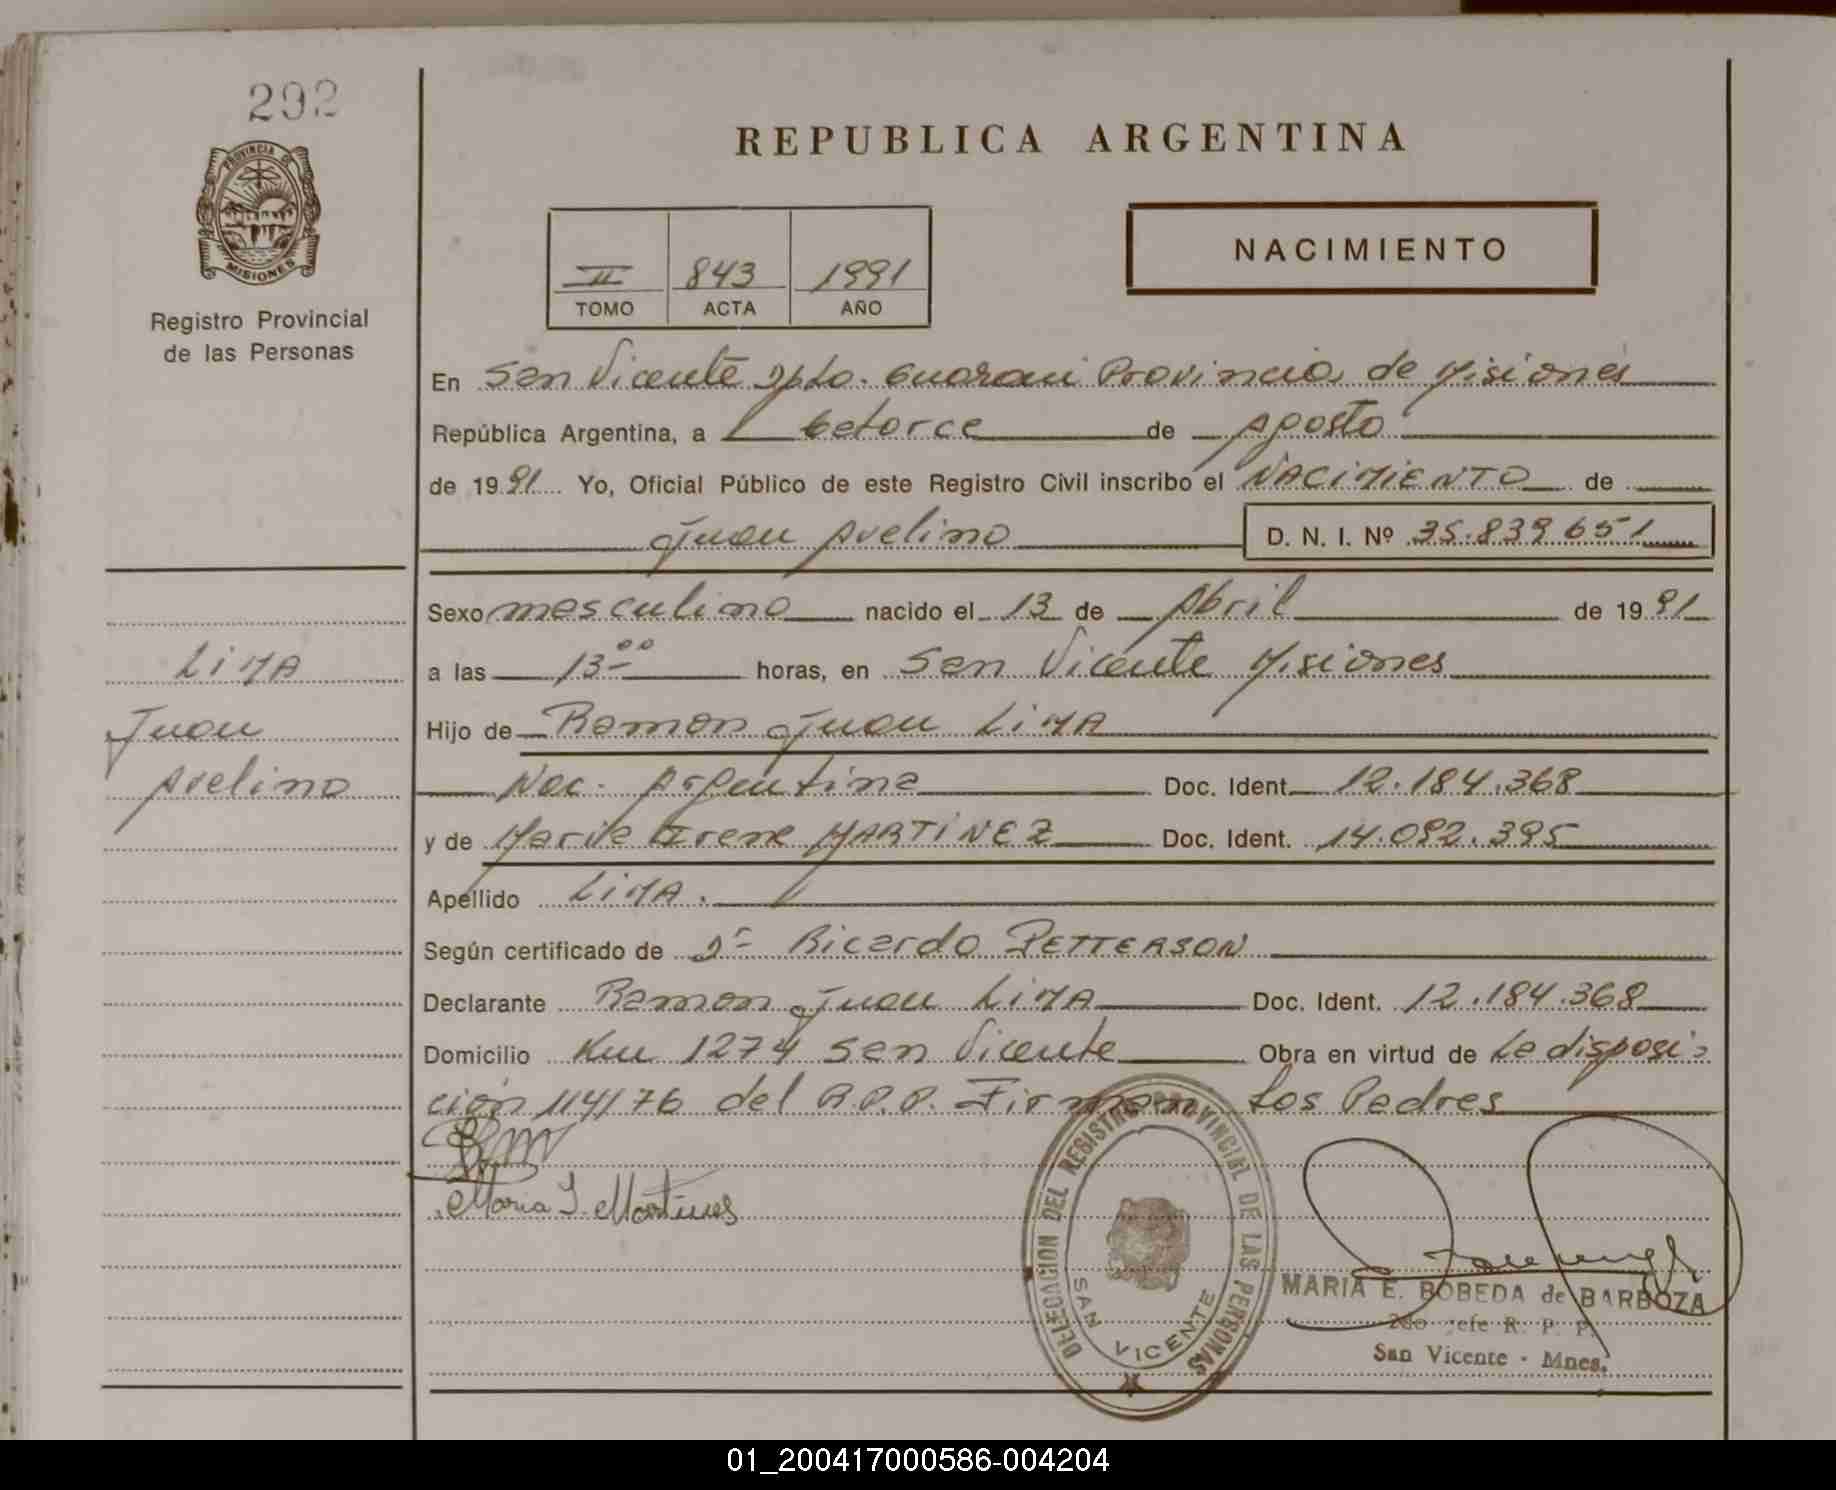 292
PROVINCIA DE
MISIONES
Registro Provincial
de las Personas
LIMA
Juan
Avelino
REPUBLICA ARGENTINA
II 843 1991
TOMO ACTA AÑO
NACIMIENTO
En San Vicente Dpto. Guarani Provincia de Misiones
República Argentina, a catorce de Agosto
de 1991 Yo, Oficial Público de este Registro Civil inscribo el NACIMIENTO de
Juan Avelino D. N. I. Nº 35.839651
Sexo masculino nacido el 13 de Abril de 1991
a las 13 00 horas, en San Vicente Misiones
Hijo de Ramon Juan LIMA
Nac. Argentina Doc. Ident. 12.184.368
y de Maria Irene MARTINEZ Doc. Ident. 14.092.395
Apellido LIMA.
Según certificado de Dr Ricardo PETTERSON
Declarante Ramon Juan LIMA Doc. Ident. 12.184.368
Domicilio Km 1274 San Vicente Obra en virtud de La disposi-
ción 114/76 del R.P.P. Firman Los Padres
Maria I. Martines
DELEGACION DEL REGISTRO PROVINCIAL DE LAS PERSONAS
SAN VICENTE
MARIA E. BOBEDA de BARBOZA
2do Jefe R. P. P.
San Vicente - Mnes.
01_200417000586-004204